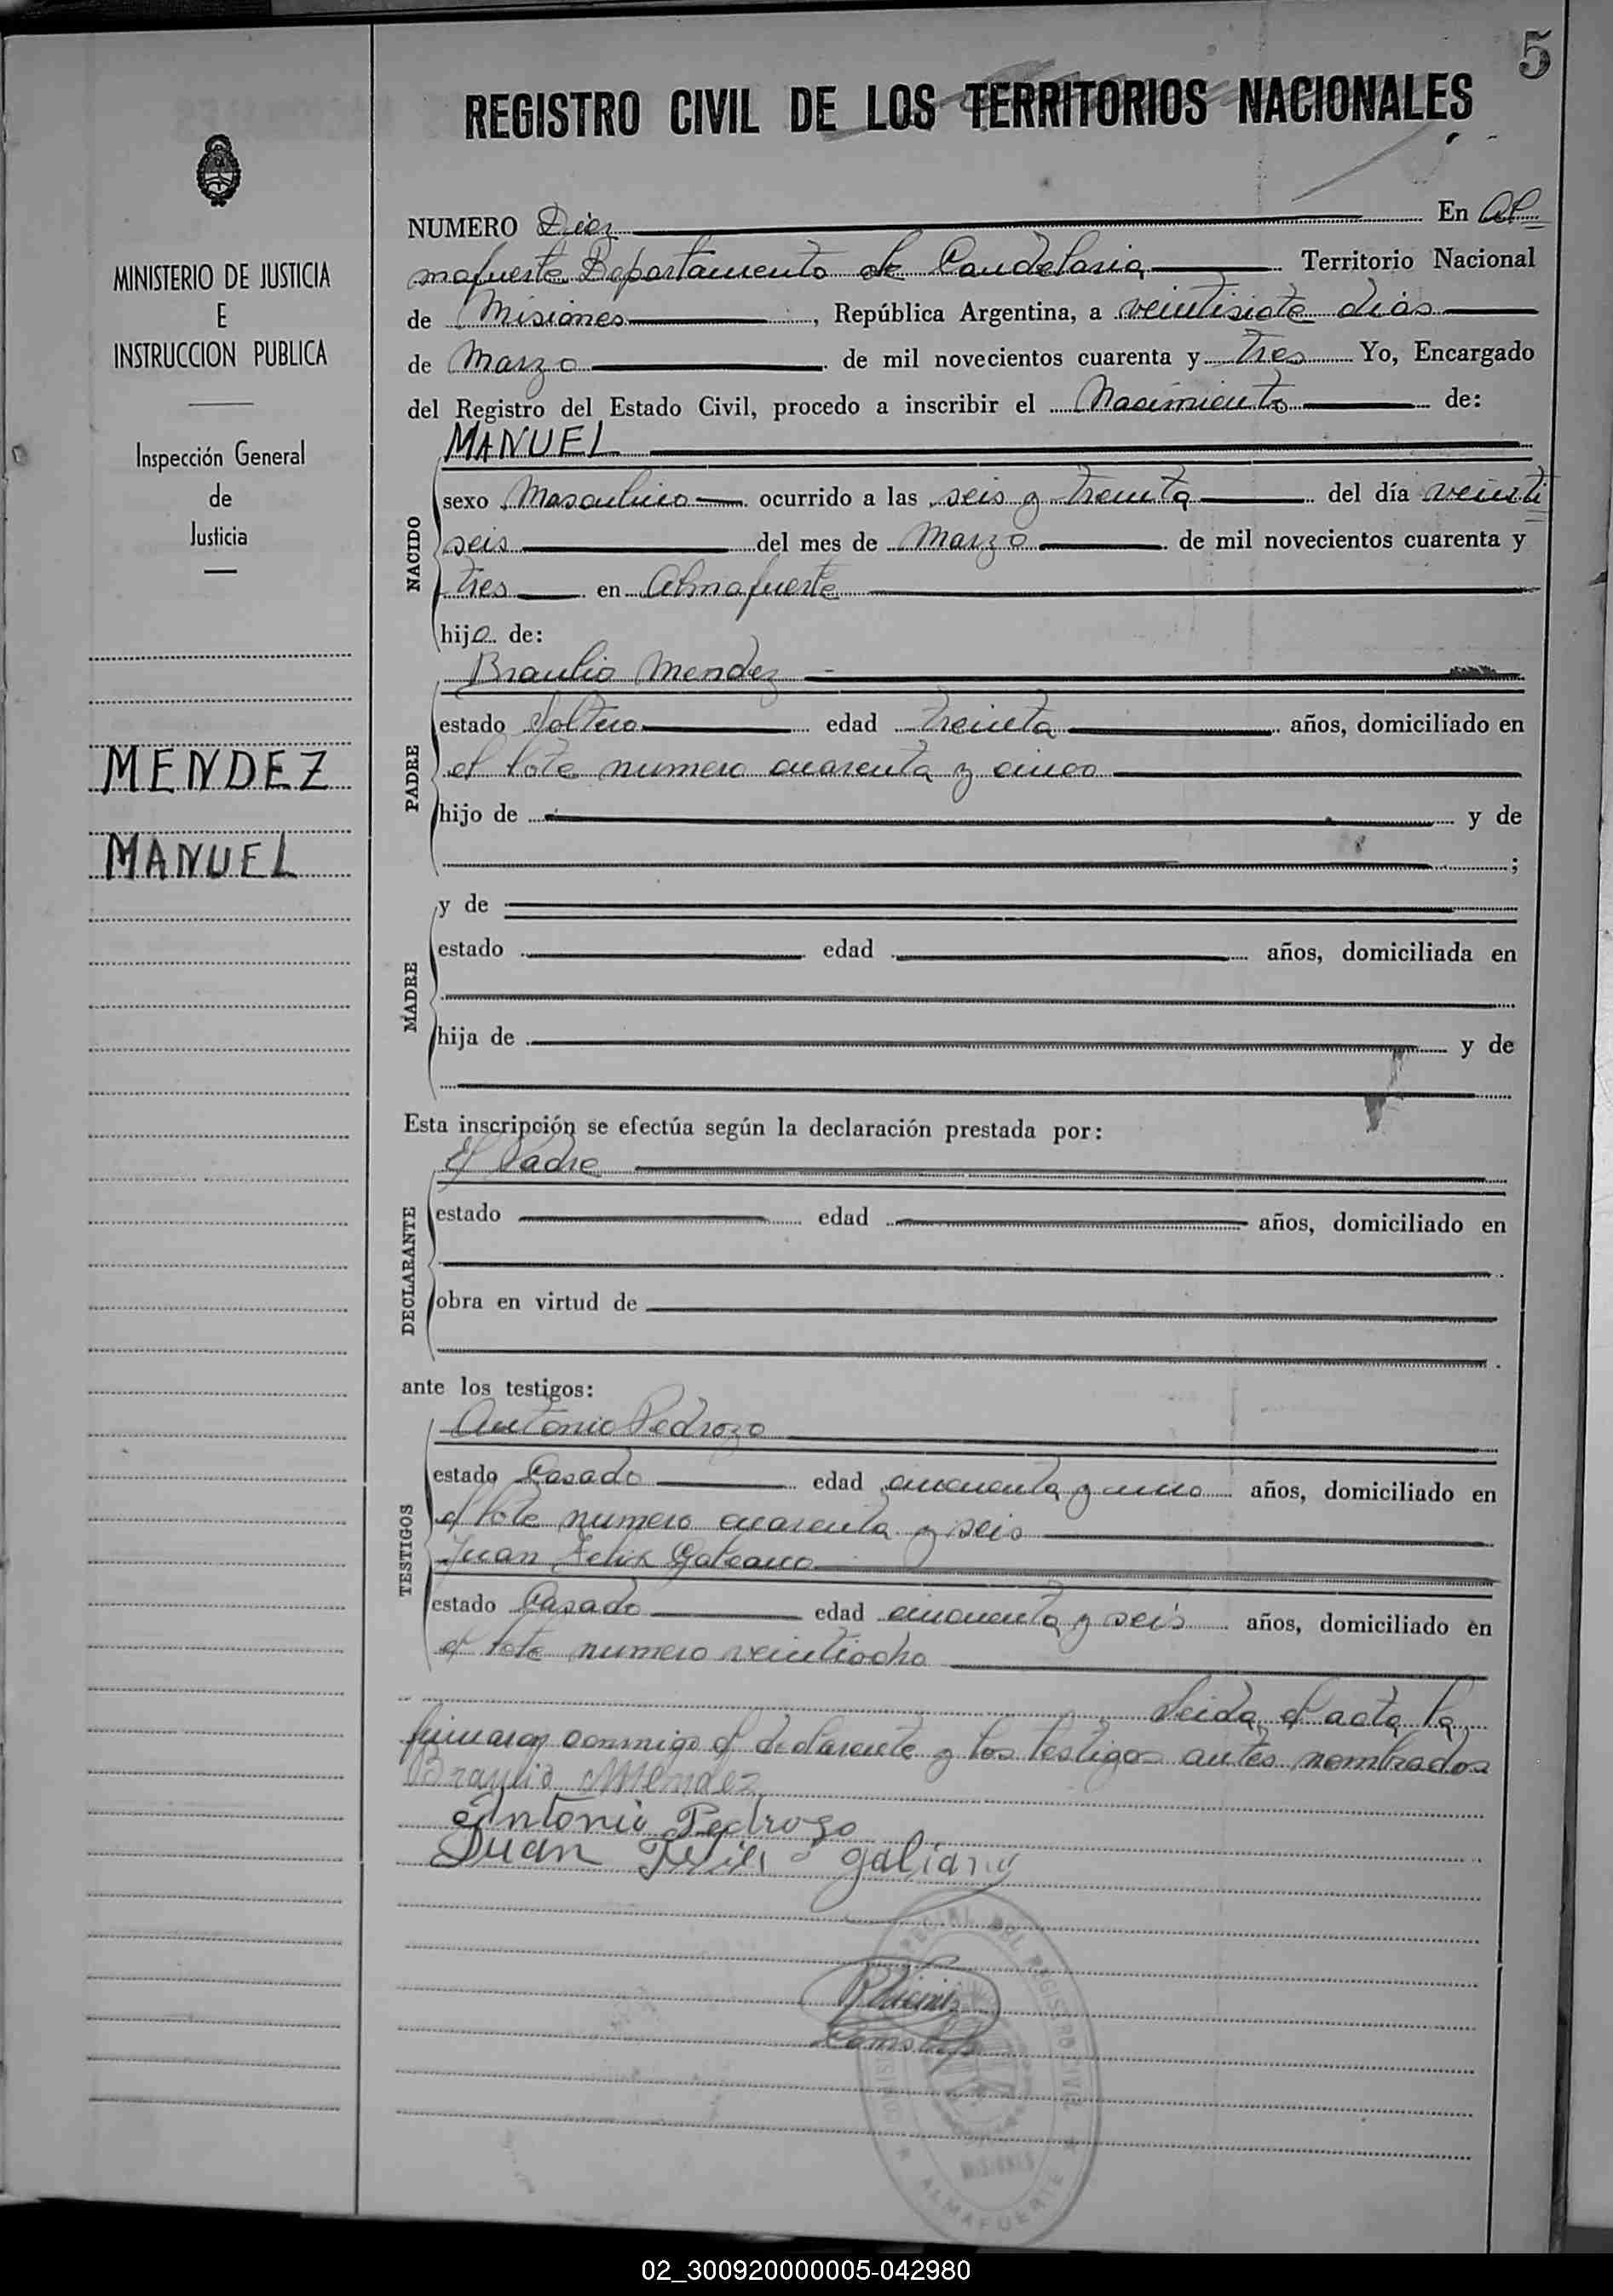 5
REGISTRO CIVIL DE LOS TERRITORIOS NACIONALES
MINISTERIO DE JUSTICIA
E
INSTRUCCION PUBLICA
Inspección General
de
Justicia
MENDEZ
MANUEL
NUMERO Diez En Al
mafuerte Departamento de Candelaria Territorio Nacional
de Misiones, República Argentina, a veintisiete dias
de Marzo de mil novecientos cuarenta y tres Yo, Encargado
del Registro del Estado Civil, procedo a inscribir el Nacimiento de:
NACIDO
MANUEL
sexo Masculino ocurrido a las seis y treinta del día veinti
seis del mes de Marzo de mil novecientos cuarenta y
tres en Almafuerte
hijo de:
PADRE
Braulio Mendez
estado Soltero edad treinta años, domiciliado en
el lote numero cuarenta y cinco
hijo de y de
;
MADRE
y de
estado edad años, domiciliada en
hija de y de
Esta inscripción se efectúa según la declaración prestada por:
DECLARANTE
El Padre
estado edad años, domiciliado en
obra en virtud de
ante los testigos:
TESTIGOS
Antonio Pedrozo
estado Casado edad cincuenta y uno años, domiciliado en
el lote numero cuarenta y seis
Juan Felix Galeano
estado Casado edad cincuenta y seis años, domiciliado en
el lote numero veintiocho
Leida el acta la
firmaron conmigo el declarante y los testigos antes nombrados
Braulio Mendez
Antonio Pedrozo
Juan Felix galiano
REGISTRO CIVIL
MISIONES
ALMAFUERTE
02_300920000005-042980